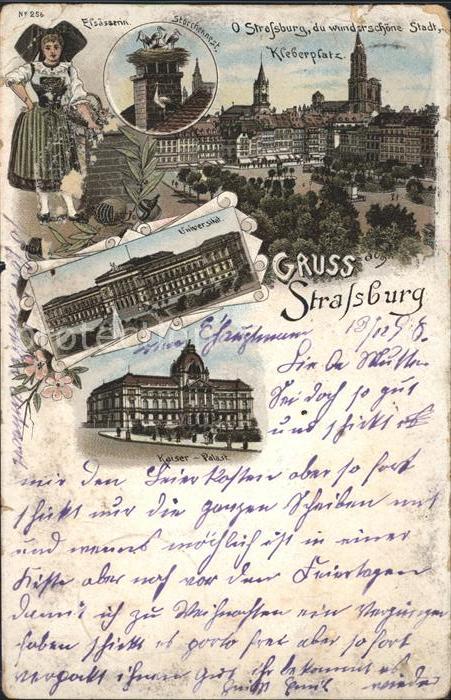 No 256
Elsässerin.
Storchennest.
O Straſsburg, du wunderschöne Stadt,
Kleberplatz.
Universität.
GRUSS aus
Straſsburg
Kaiser - Palast.
Hauptmann
Mutter
Sei doch so gut
und schickt
mir den Leierkasten aber so fort
schikt nur die ganzen Scheiben mit
und wenns möchlich ist in einer
Kiste aber noch vor den Feiertagen
damit ich zu Weihnachten ein Vergnügen
haben schickt es porto frei aber sofort
verpackt ihnen gut ihr bekommt es
wieder